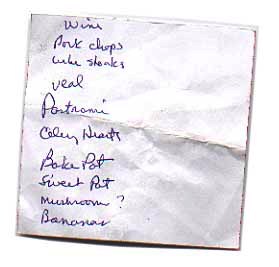 Wine
Pork chops
cube steaks
veal
Pastrami
Celery Hearts
Bake Pot
Sweet Pot
Mushroom ?
Bananas